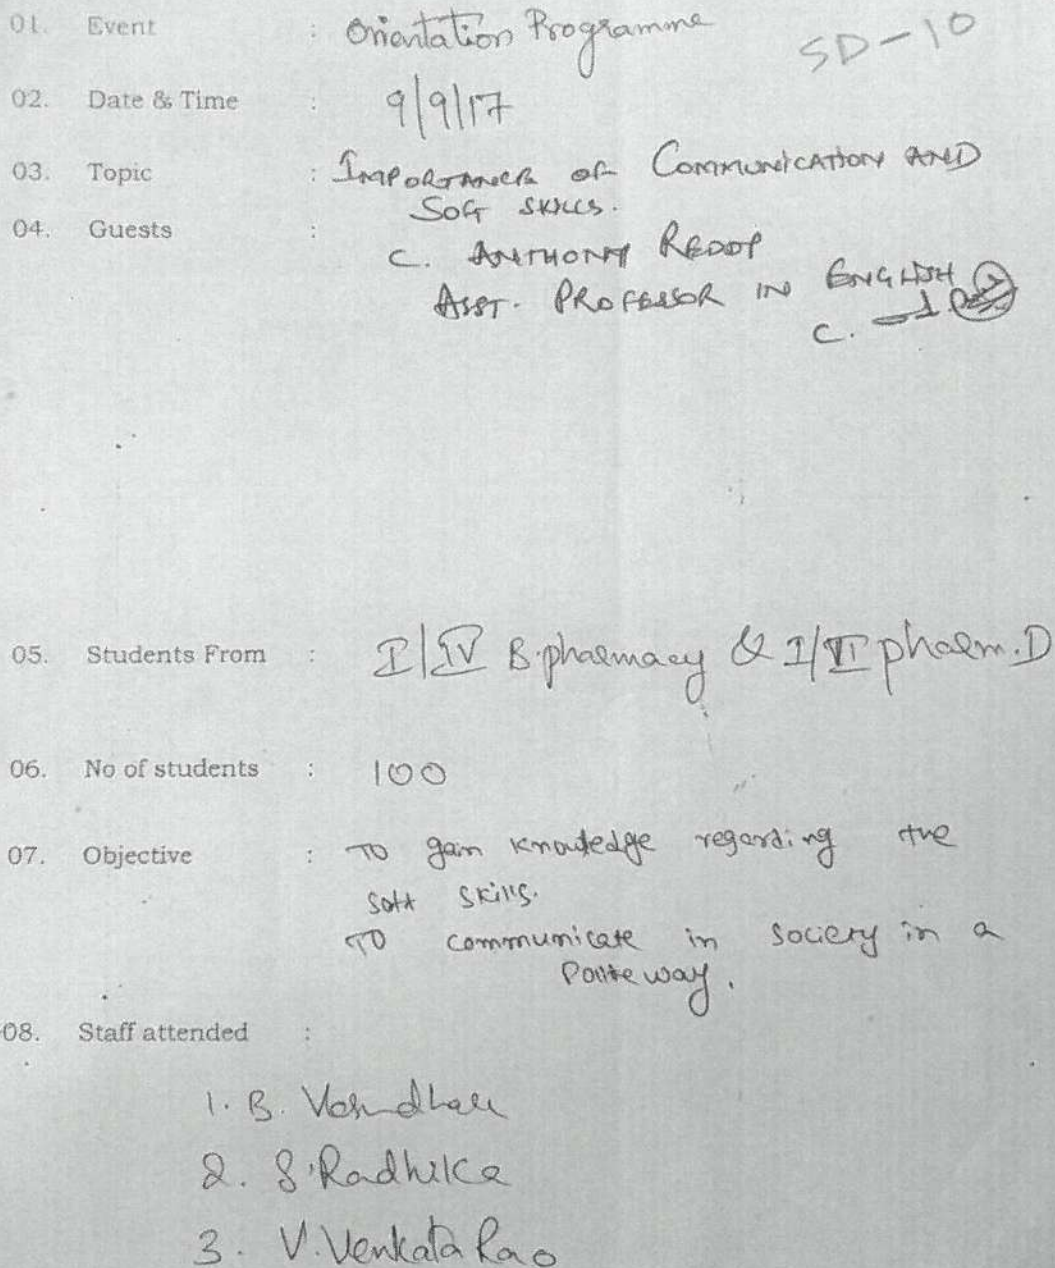 01. Event : Orientation Programme
SD-10
02. Date & Time : 9/9/17
03. Topic : IMPORTANCE OF COMMUNICATION AND
SOFT SKILLS.
04. Guests :
C. ANTHONY REDDY
ASST. PROFESSOR IN ENGLISH
C.
05. Students From : I/IV B.pharmacy & I/VI pharm.D
06. No of students : 100
07. Objective : To gain knowledge regarding the
soft skills.
To communicate in society in a
Polite way.
08. Staff attended :
1. B.
2. S. Radhika
3. V. Venkata Rao